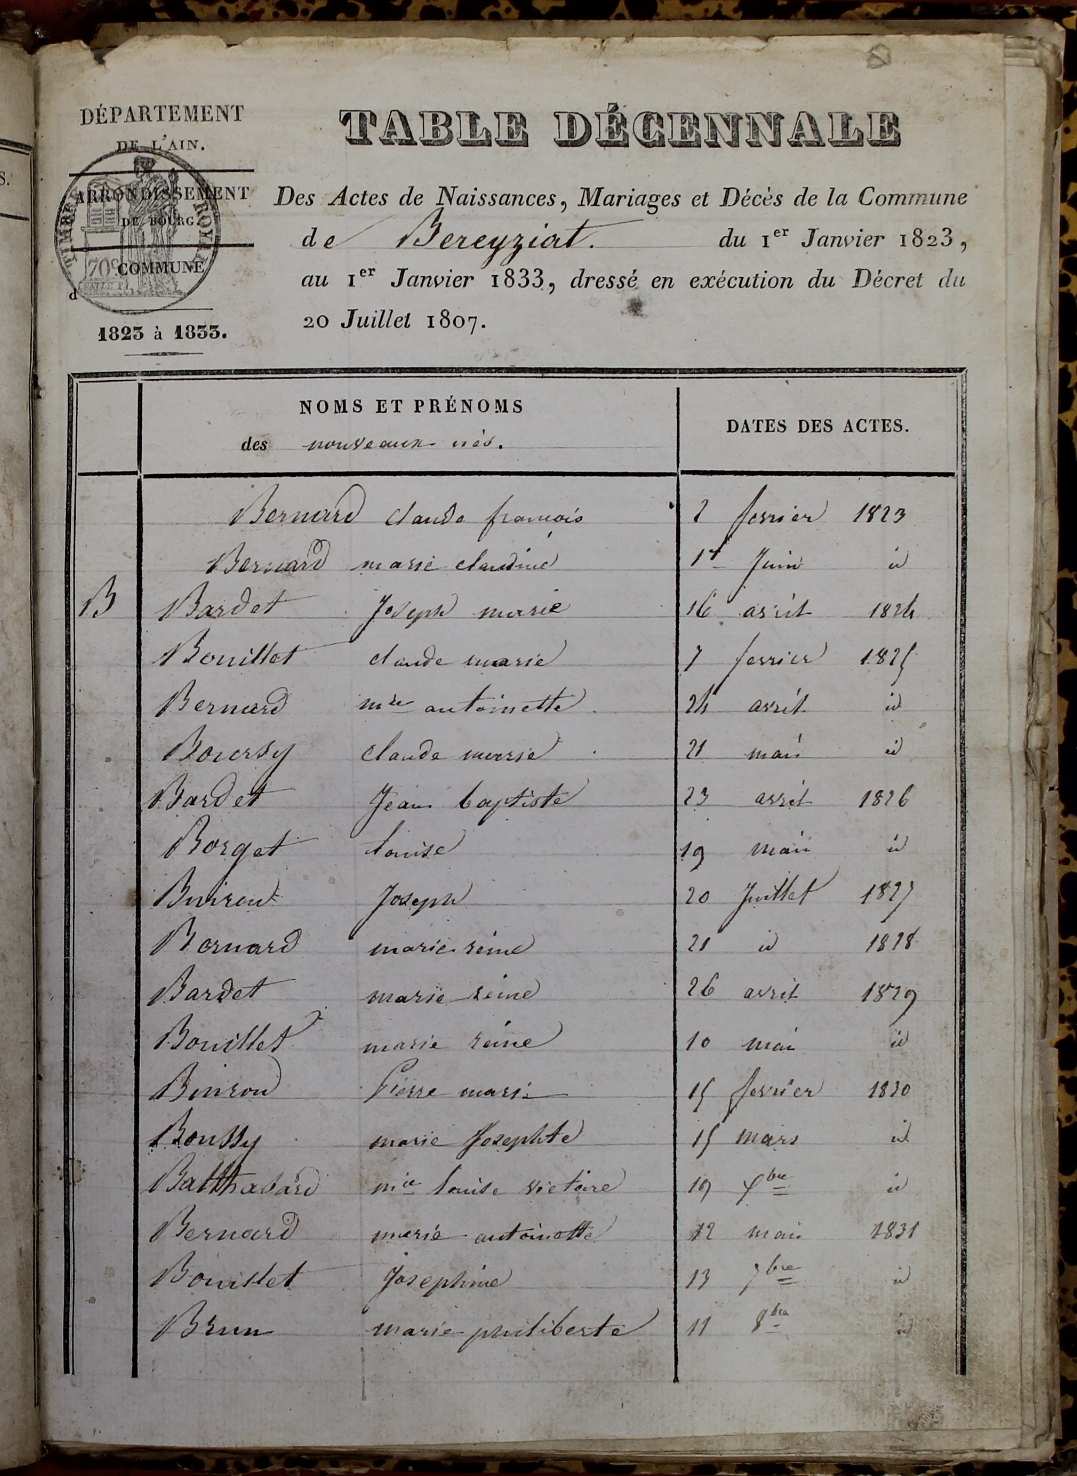 DÉPARTEMENT
DE L'AIN.
ARRONDISSEMENT
DE BOURG
COMMUNE
d
1823 à 1833.
TIMBRE ROYAL
70c
TABLE DÉCENNALE
Des Actes de Naissances, Mariages et Décès de la Commune
de Bereyziat. du 1er Janvier 1823,
au 1er Janvier 1833, dressé en exécution du Décret du
20 Juillet 1807.
NOMS ET PRÉNOMS
des nouveaux nés.
DATES DES ACTES.
Bernard claude francois 2 fevrier 1823
Bernard marie claudine 1er Juin id
B Bardet Joseph marie 16 avril 1824
Bouillet claude marie 7 fevrier 1825
Bernard mie antoinette 24 avril id
Boursy claude marie 21 mai id
Bardet Jean baptiste 23 avril 1826
Borget louise 19 mai id
Buiron Joseph 20 Juillet 1827
Bernard marie reine 21 id 1828
Bardet marie reine 26 avril 1829
Bouillet marie reine 10 mai id
Buiron Pierre marie 15 fevrier 1830
Boussy marie Josephte 15 mars id
Balthasard mie louise victoire 19 bre id
Bernard marie antoinette 12 mai 1831
Bouillet Josephine 13 7bre id
Brun marie philiberte 11 8bre id